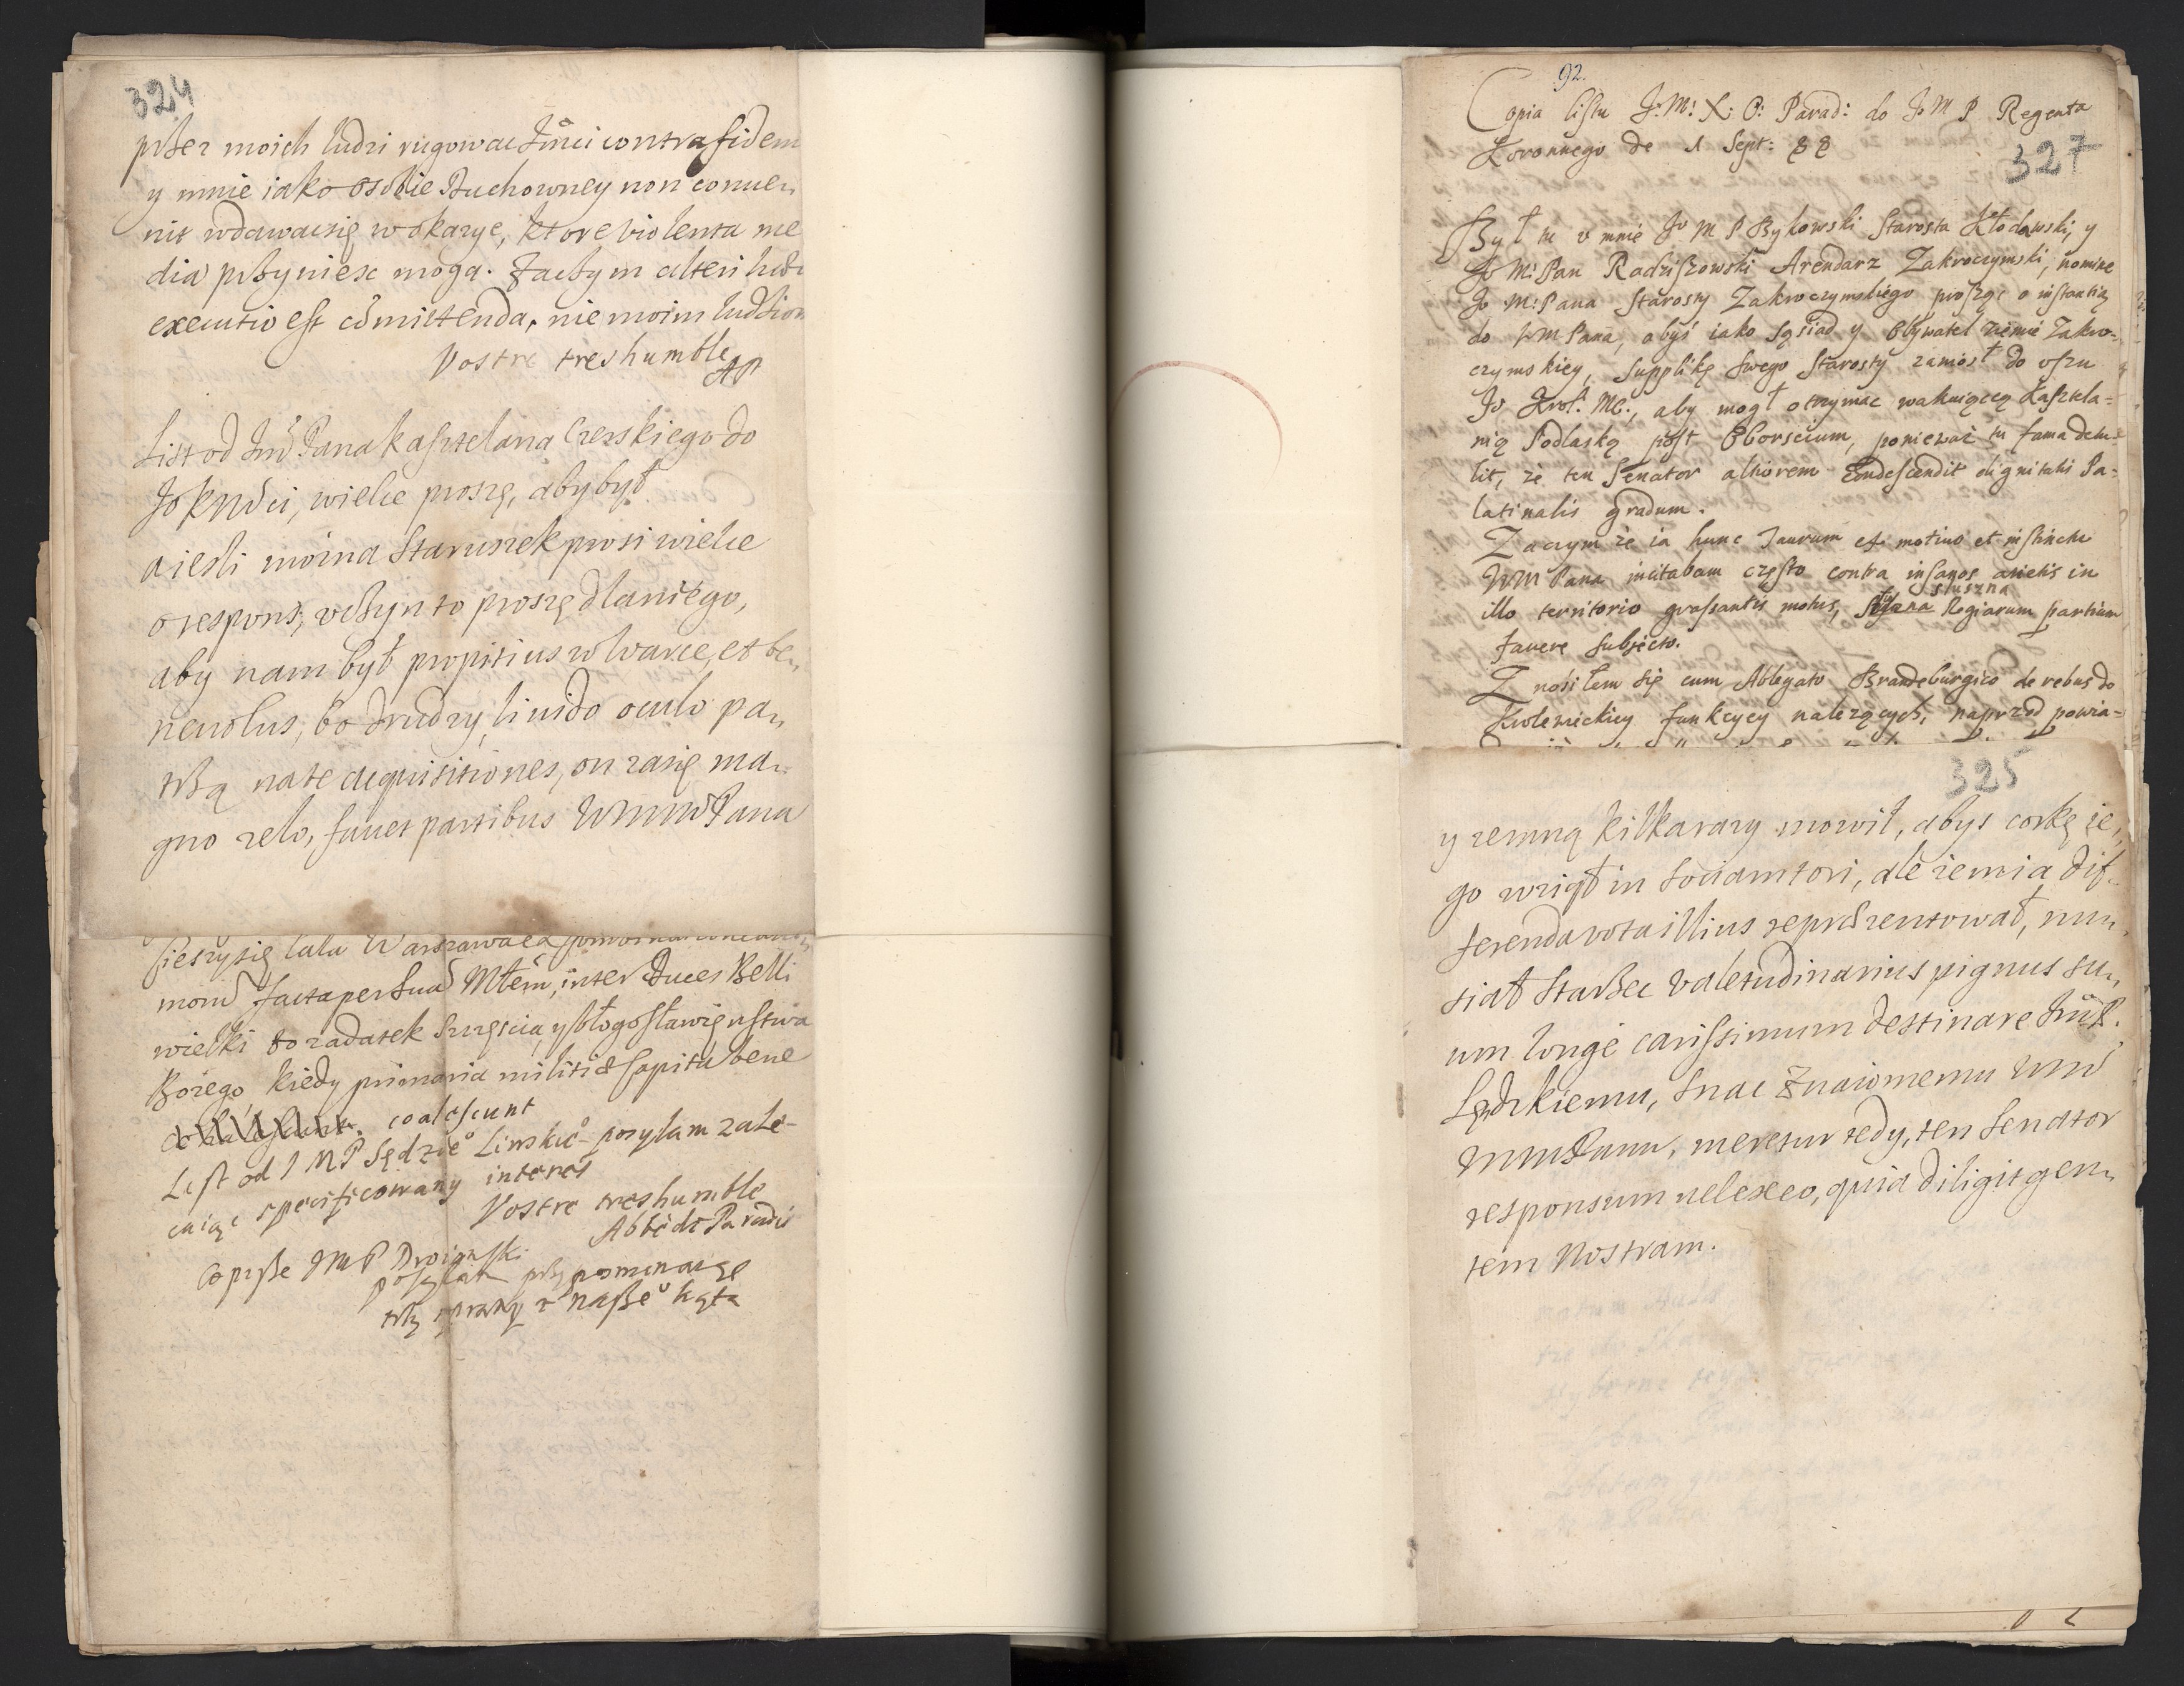 324
przez moich ludzi rugowac Jmci contra fidem
y mnie iako osobie Duchowney non conue-
nit wdawac się w okazye, ktore violenta me
dia przyniesc mogą. Zaczym alteri huic
executio est comittenda, nie moim ludziom
Vostre treshumble
AP
List od Jm Pana Kasztelana Czerskiego do
Jo Kr Mci, wielce proszę, aby był
a iesli można Staruszek prosi wielce
o respons, uczyn to proszę dla niego,
aby nam był propitius w Warce, et be-
neuolus, bo drudzy liuido oculo pa-
trzą na te acquisitiones, on zasię ma-
gno zelo, fauet partibus WMMPana
cieszy się cała Warszawa ex
mom facta per Suam Mtem, inter Duces Belli
wielki to zadatek szczęscia, y błogosławięnstwa
Bozego, kiedy primaria militiae capita bene
coalescunt
List od JMP Sędzie Liwskie posyłam zale-
caiąc specificowany interes
Vostre treshumble
Abbé de Paradis
Co pisze JMP Droinski
posyłam przypominaiąc
trzy sprawy z nasze kąta
92.
Copia listu J: M: X: O: Parad: do Jo M P Regenta
Koronnego de 1 Sept: 88
327
Był tu u mnie Jo M P Bykowski Starosta Kłodawski, y
Jo M: Pan Radziszowski Arendarz Zakroczymski, nomine
Jo M: Pana Starosty Zakroczymskiego, prosząc o instantią
do WM Pana, abyś iako Sąsiad y Obywatel ziemie Zakro-
czymskiey, Supplikę swego Starosty zaniosł do oszu
Jo Krol: Mc:, aby mogł otrzymac wakuiącą Kasztela-
nią Podlaską post Oborscium, ponieważ tu fama detu-
lit, że ten Senator altiorem condescendit dignitatis Pa-
latinalis gradum.
Zaczym że ia hunc Taurum ex motiuo et instinctu
WM Pana incitabam często contra insanos arietis in
illo territorio grassantis motus, słuszna Regiarum partium
fauere subjecto.
Znosiłem się cum Ablegato Brandeburgico de rebus do
Krolewickiey funkcyey należących, naprzod powia-
325
y zemną kilkarazy mowił, abys corkę ie-
go wziął in sociam tori, ale że mia dif-
ferenda vota illius repraezentował, nun-
tiat Starzec valetudinarius pignus su-
um longe carissimum destinare JmP.
Lędzkiemu, snac Znaiomemu WM
MMPanu, meretur tedy, ten Senator
responsum ne lexeo, quia diligit gen-
tem Nostram.